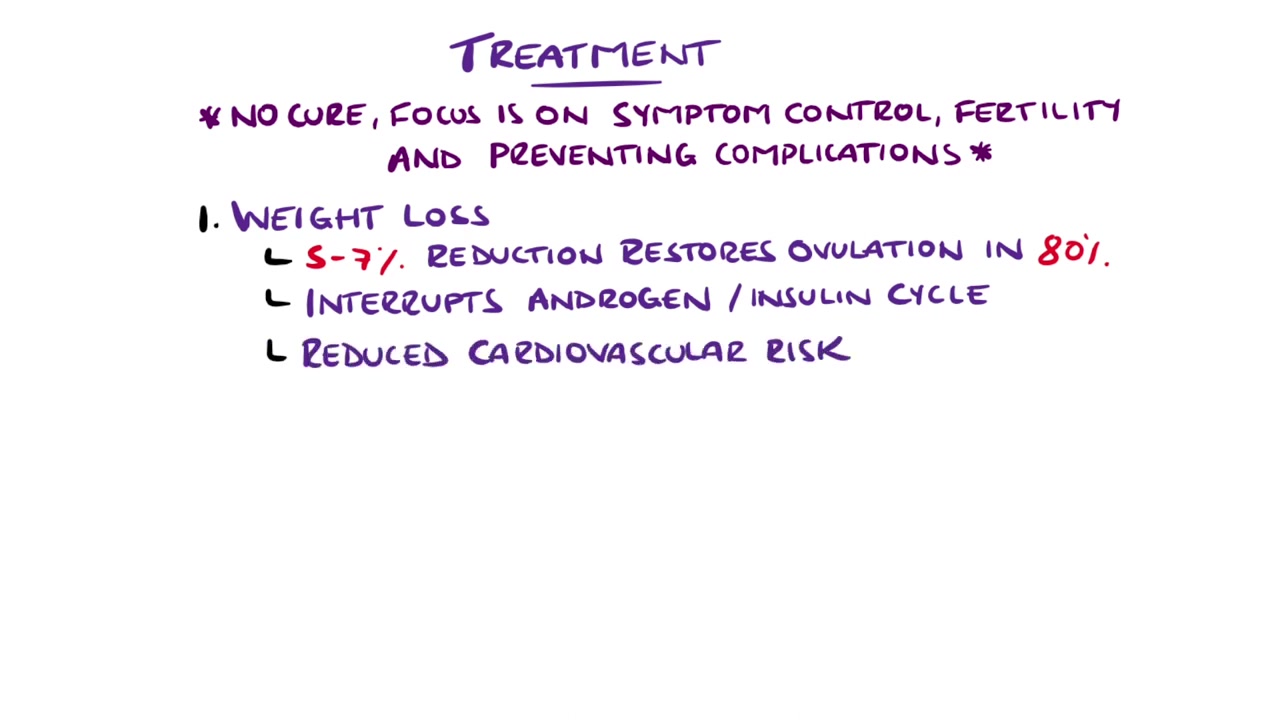 TREATMENT
* NO CURE, FOCUS IS ON SYMPTOM CONTROL, FERTILITY
AND PREVENTING COMPLICATIONS *
1. WEIGHT LOSS
5-7% REDUCTION RESTORES OVULATION IN 80%.
INTERRUPTS ANDROGEN / INSULIN CYCLE
REDUCED CARDIOVASCULAR RISK